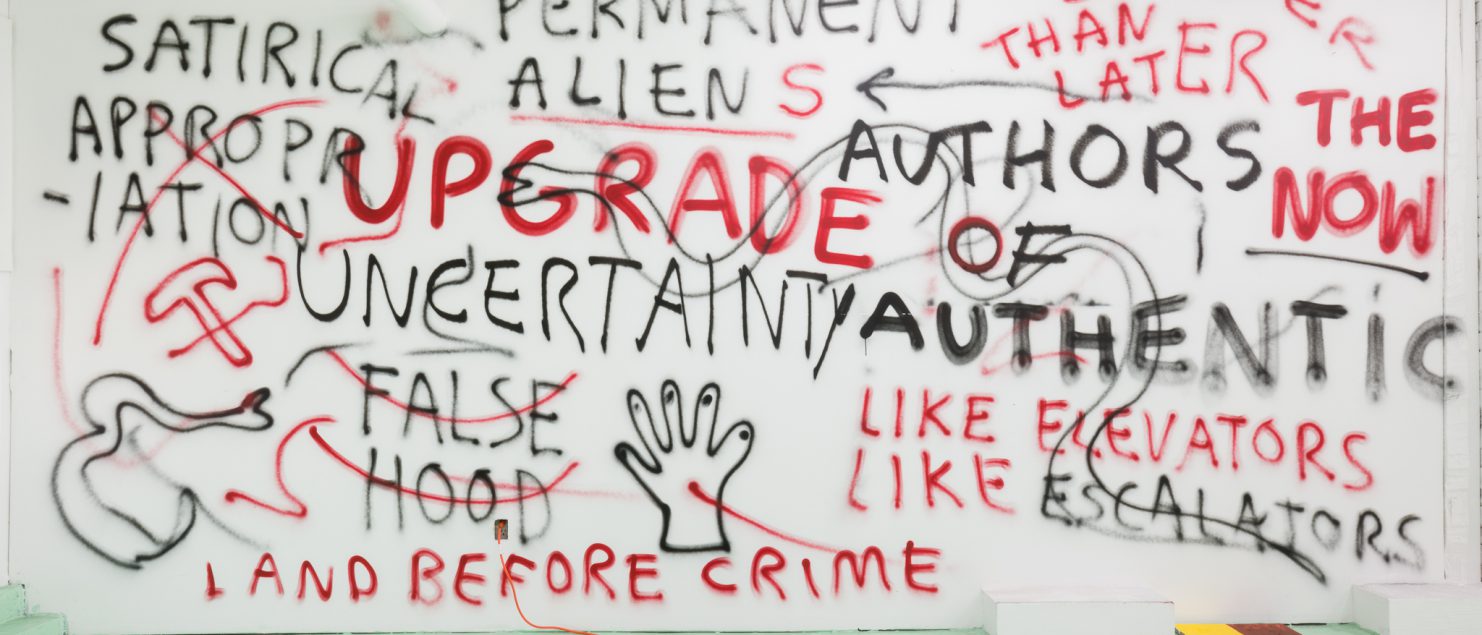 SATIRICAL
APPROPR
-IATION
PERMANENT
ALIENS
THAN
LATER
THE
NOW
UPGRADE
AUTHORS
OF
UNCERTAINTY/AUTHENTIC
FALSE
HOOD
LIKE ELEVATORS
LIKE ESCALATORS
LAND BEFORE CRIME